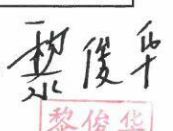 黎俊华
黎俊华